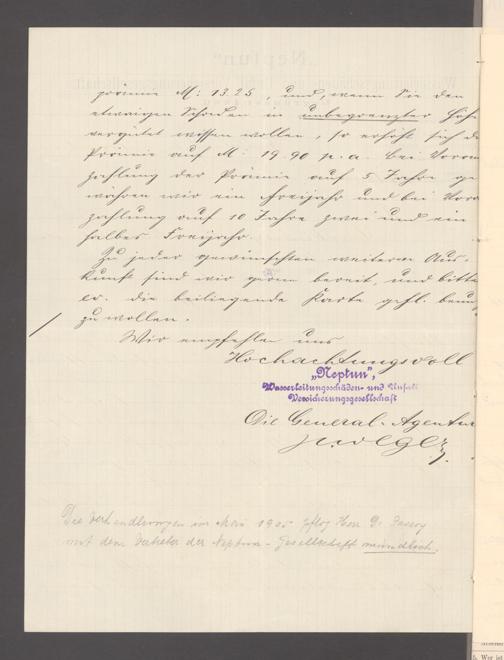 prämie M: 13.25, und, wenn Sie den
etwaigen Schaden in unbegrenzter Höhe
vergütet wissen wollen, so erhöht sich die
Prämie auf M: 19.90 p. a. Bei Voraus
zahlung der Prämie auf 5 Jahre ge
währen wir ein Freijahr und bei Voraus
zahlung auf 10 Jahre zwei und ein
halbes Freijahr.
Zu jeder gewünschten weiteren Aus-
kunft sind wir gern bereit, und bitte
er. die beiliegende Karte gefl.
zu wollen.
Wir empfehlen uns
Hochachtungsvoll
„Neptun",
Wasserleitungsschäden- und Unfall
Versicherungsgesellschaft
Die General-Agentur
Die Verhandlungen im Mai 1905 pflog Herr Dr.
mit dem Vertreter der Neptun-Gesellschaft mündlich.
5. Wer ist